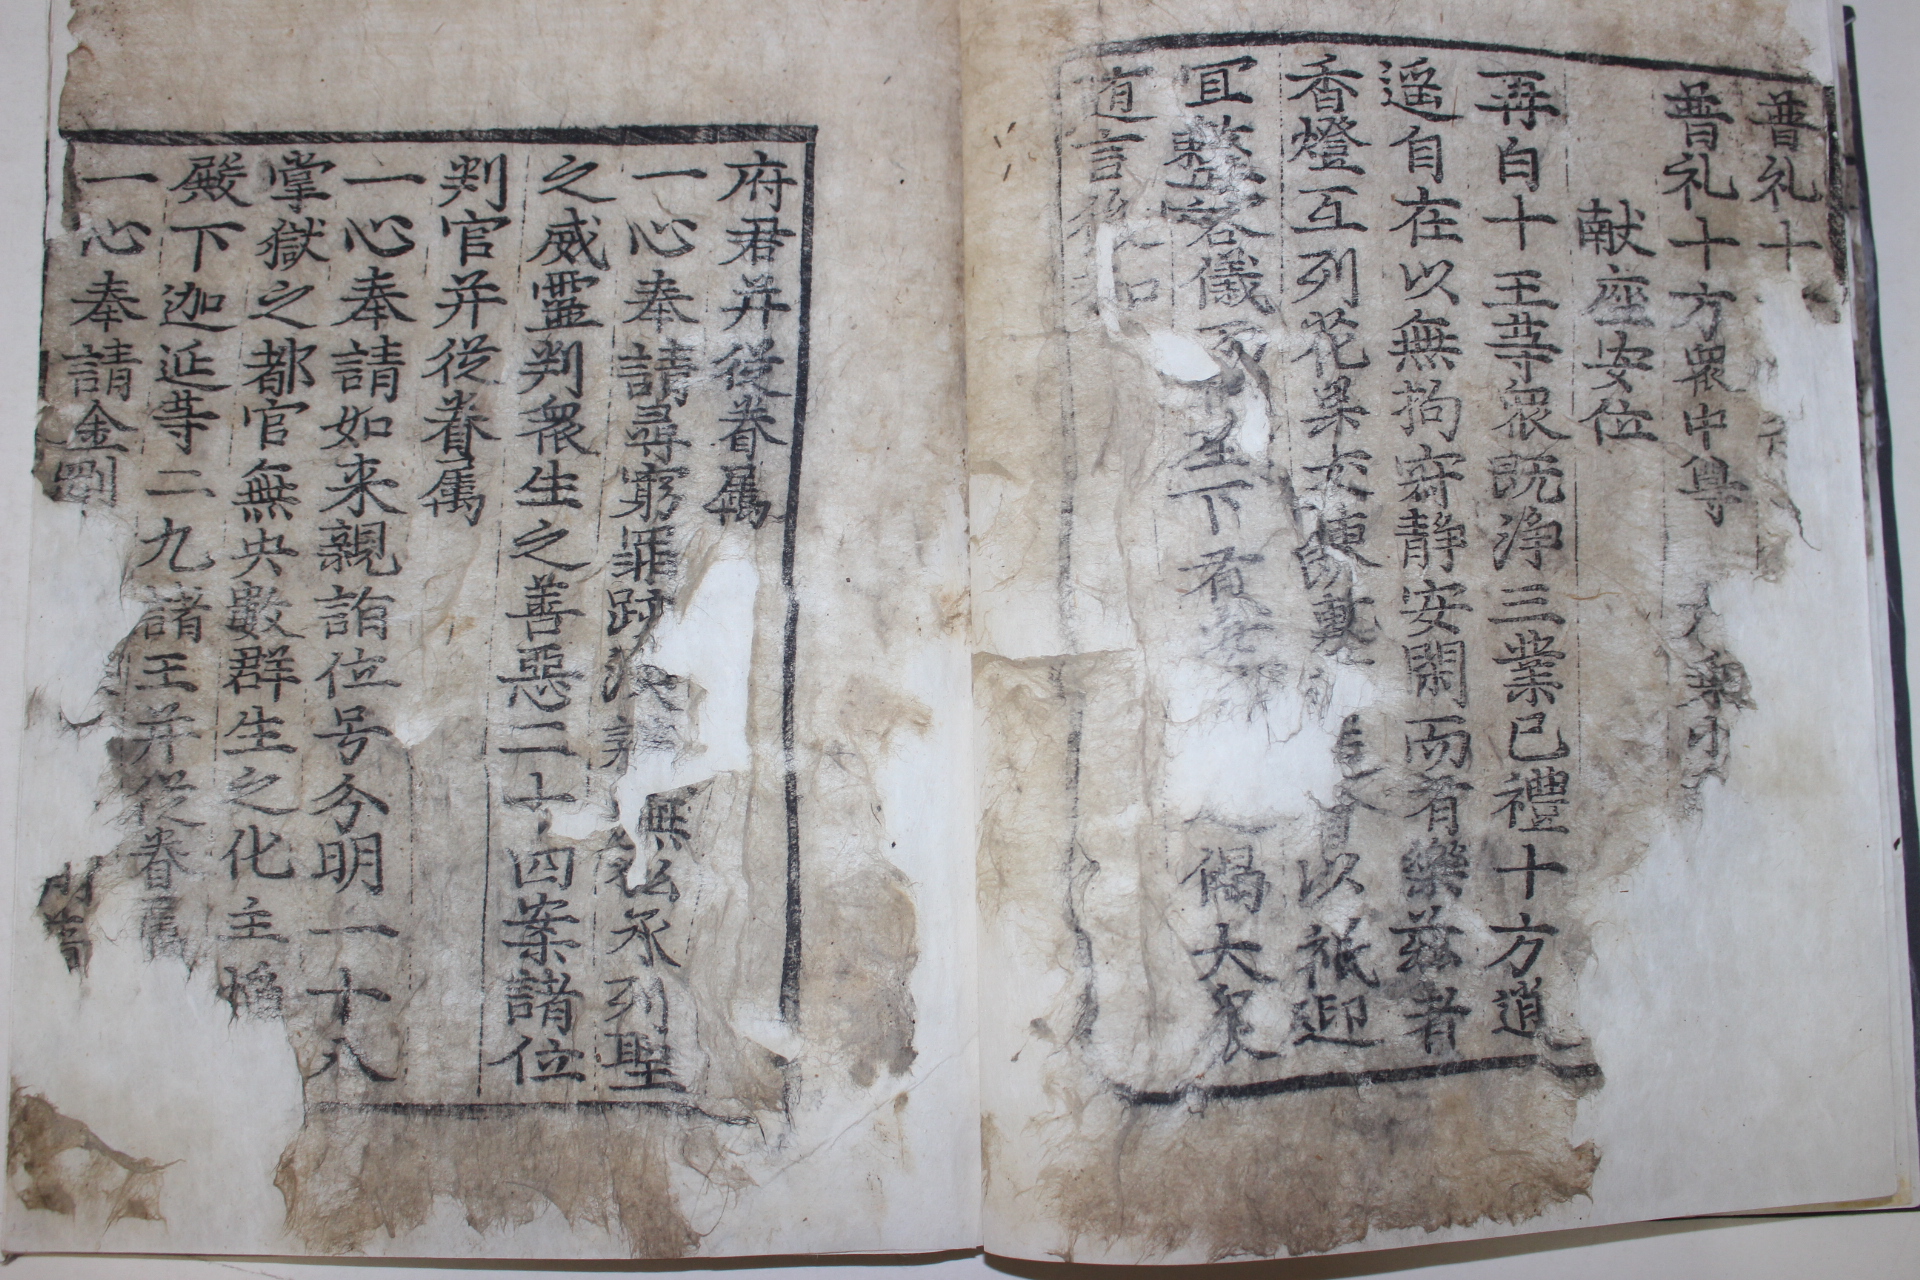 普礼十
普礼十方衆中尊
献座安位
再白十王等衆既净三業已禮十方逍
遥自在以無拘寂静安閑而有樂兹者
香燈互列花果交陳以祗迎
冝整容儀下着偈大衆
道言後和
府君并從眷属
一心奉請尋窮罪跡無私承列聖
之威靈判衆生之善惡二十四案諸位
判官并從眷属
一心奉請如来親詣位号分明一十八
掌獄之都官無央數群生之化主
殿下迦延等二九諸王并從眷属
一心奉請金剛